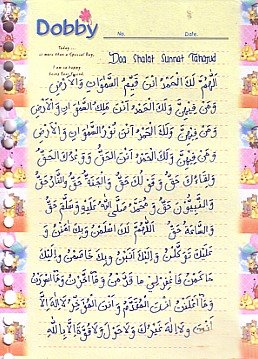 Dobby
Today...
is more than a Special Day,
I am so happy
No. Date.
Doa Shalat Sunnat Tahajud
اَللّٰهُمَّ لَكَ الْحَمْدُ اَنْتَ قَيِّمُ السَّمَوَاتِ وَالْاَرْضِ
وَمَنْ فِيْهِنَّ وَلَكَ الْحَمْدُ اَنْتَ مَلِكُ السَّمَوَاتِ وَالْاَرْضِ
وَمَنْ فِيْهِنَّ وَلَكَ الْحَمْدُ اَنْتَ نُوْرُ السَّمَوَاتِ وَالْاَرْضِ
وَمَنْ فِيْهِنَّ وَلَكَ الْحَمْدُ اَنْتَ الْحَقُّ وَوَعْدُكَ الْحَقُّ
وَلِقَاءُكَ حَقٌّ وَقَوْلُكَ حَقٌّ وَالْجَنَّةُ حَقٌّ وَالنَّارُ حَقٌّ
وَالنَّبِيُّوْنَ حَقٌّ وَمُحَمَّدٌ صَلَّى اللهُ عَلَيْهِ وَسَلَّمَ حَقٌّ
وَالسَّاعَةُ حَقٌّ اَللّٰهُمَّ لَكَ اَسْلَمْتُ وَبِكَ اٰمَنْتُ وَ
عَلَيْكَ تَوَكَّلْتُ وَاِلَيْكَ اَنَبْتُ وَبِكَ خَاصَمْتُ وَاِلَيْكَ
حَاكَمْتُ فَاغْفِرْلِيْ مَا قَدَّمْتُ وَمَا اَخَّرْتُ وَمَا اَسْرَرْتُ
وَمَا اَعْلَنْتُ اَنْتَ الْمُقَدِّمُ وَاَنْتَ الْمُؤَخِّرُ لَا اِلٰهَ اِلَّا
اَنْتَ وَلَا اِلٰهَ غَيْرُكَ وَلَا حَوْلَ وَلَا قُوَّةَ اِلَّا بِاللهِ